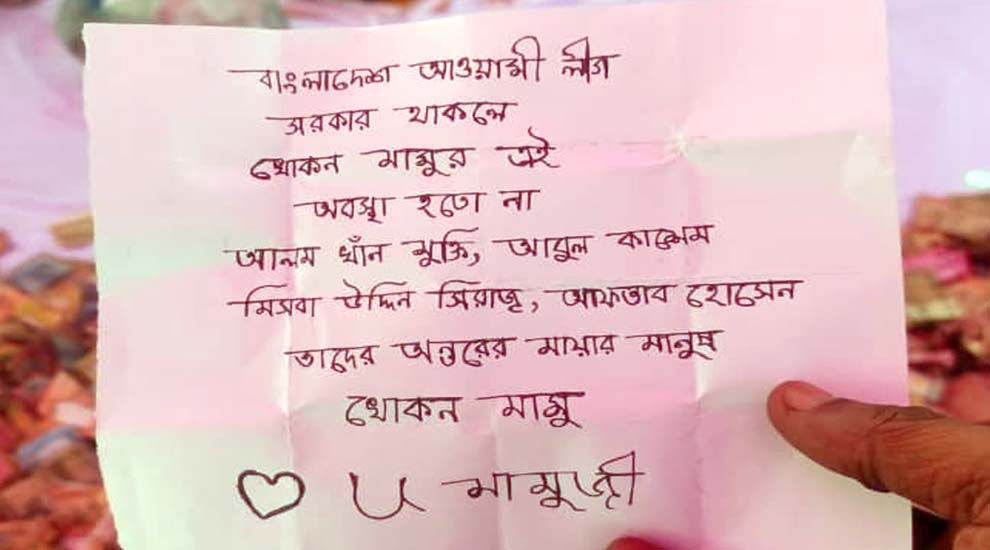 বাংলাদেশ আওয়ামী লীগ
সরকার থাকলে
খোকন মামুর এই
অবস্থা হতো না
আলম খাঁন মুক্তি, আবুল কাশেম
মিসবা উদ্দিন সিরাজ, আফতাব হোসেন
তাদের অন্তরের মায়ার মানুষ
খোকন মামু
♡ U মামুজী